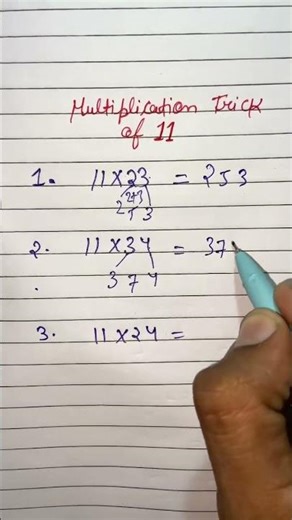 Multiplication Trick
of 11
1. 11×23 = 253
2+3
2 5 3
2. 11×34 = 37
3 7 4
.
3. 11×24 =